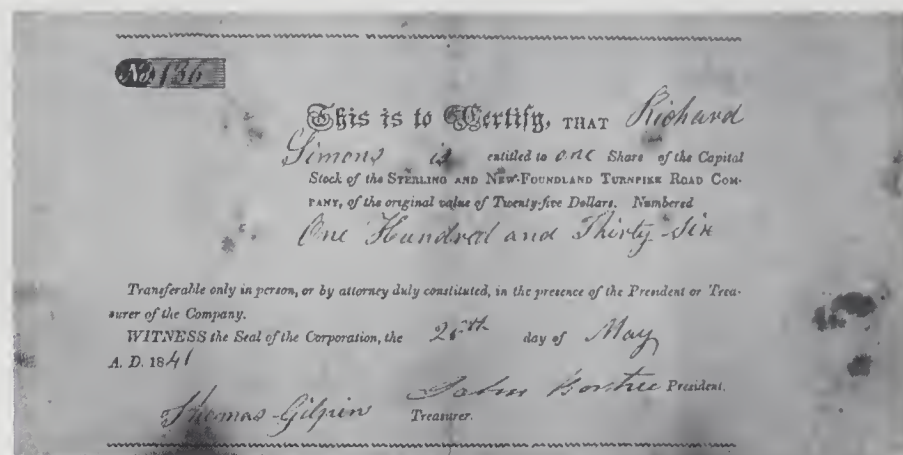 No 136
This is to Certify, THAT Richard
Simons is entitled to one Share of the Capital
Stock of the STERLING AND NEW-FOUNDLAND TURNPIKE ROAD COM-
PANY, of the original value of Twenty-five Dollars. Numbered
One Hundred and Thirty-Six
Transferable only in person, or by attorney duly constituted, in the presence of the President or Trea-
surer of the Company.
WITNESS the Seal of the Corporation, the day of May
A. D. 1841
John President.
Thomas Gilpin Treasurer.